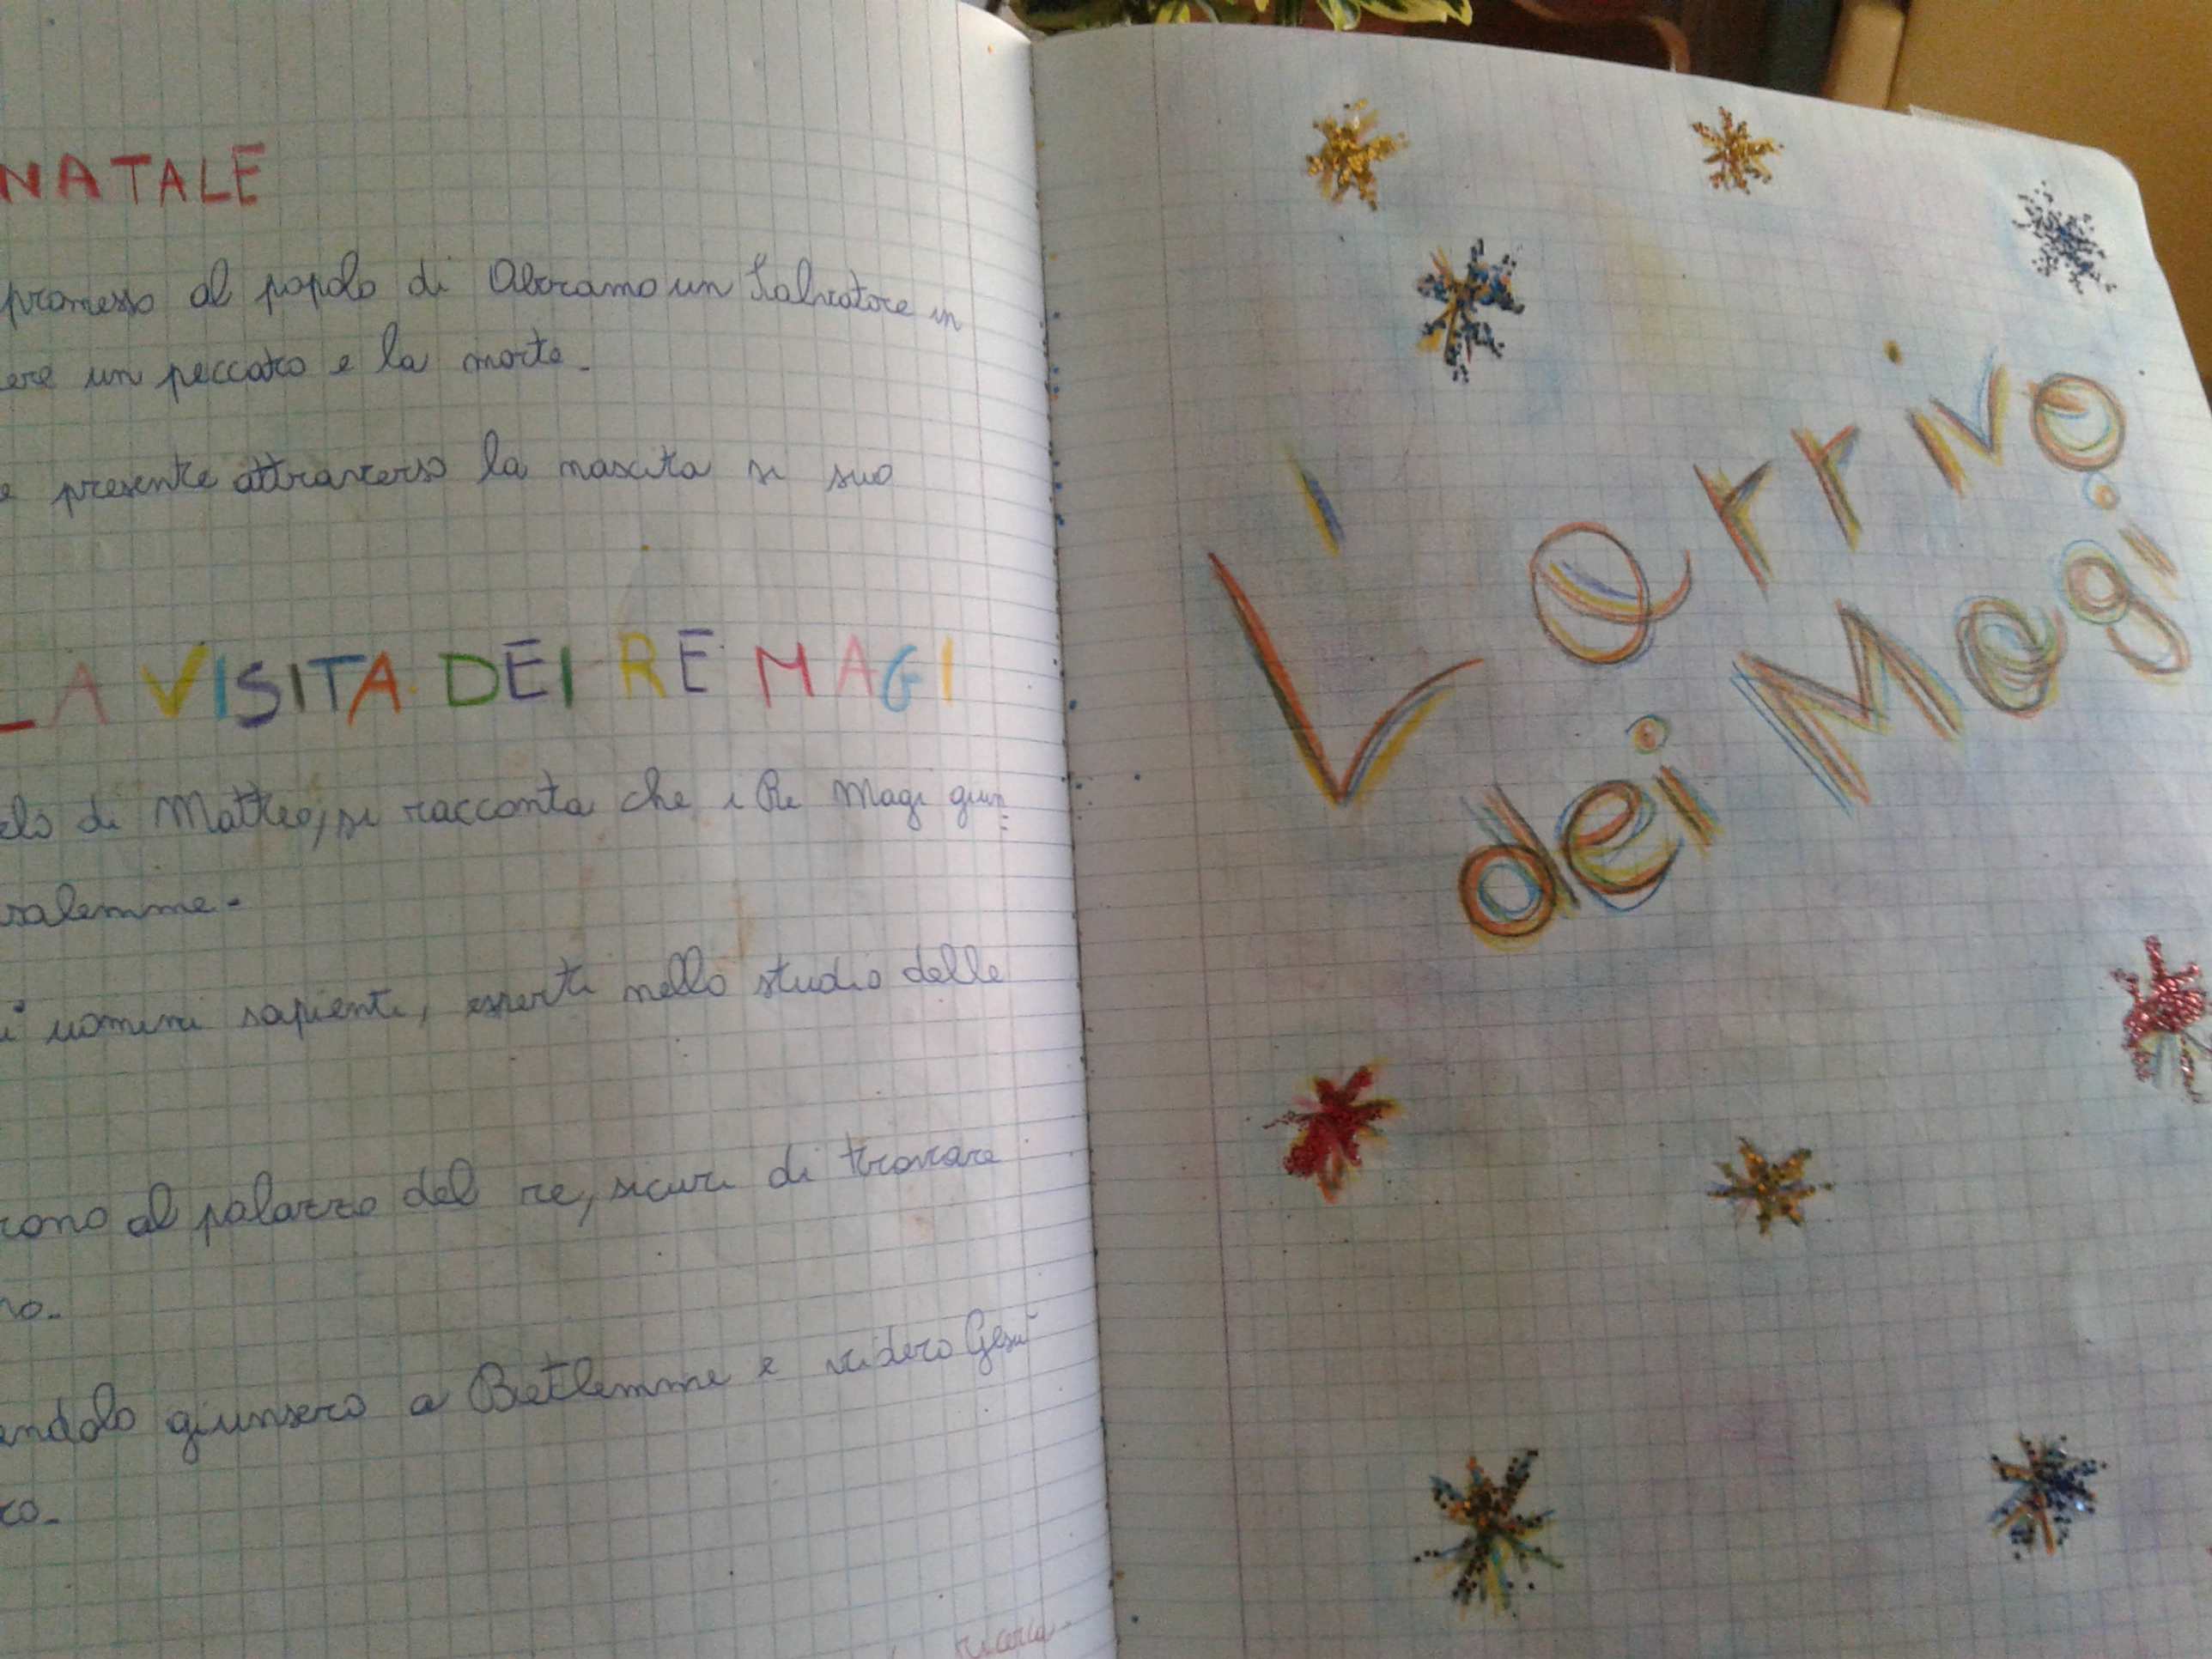 NATALE
promesso al popolo di Abramo un Salvatore in
ere un peccato e la morte.
e presente attraverso la nascita si suo
LA VISITA DEI RE MAGI
elo di Matteo, si racconta che i Re Magi giun=
salemme.
i uomini sapienti, esperti nello studio delle
rono al palazzo del re, sicuri di trovare
no.
endolo giunsero a Betlemme e videro Gesù
co.
ricerca.
L'arrivo
dei Magi